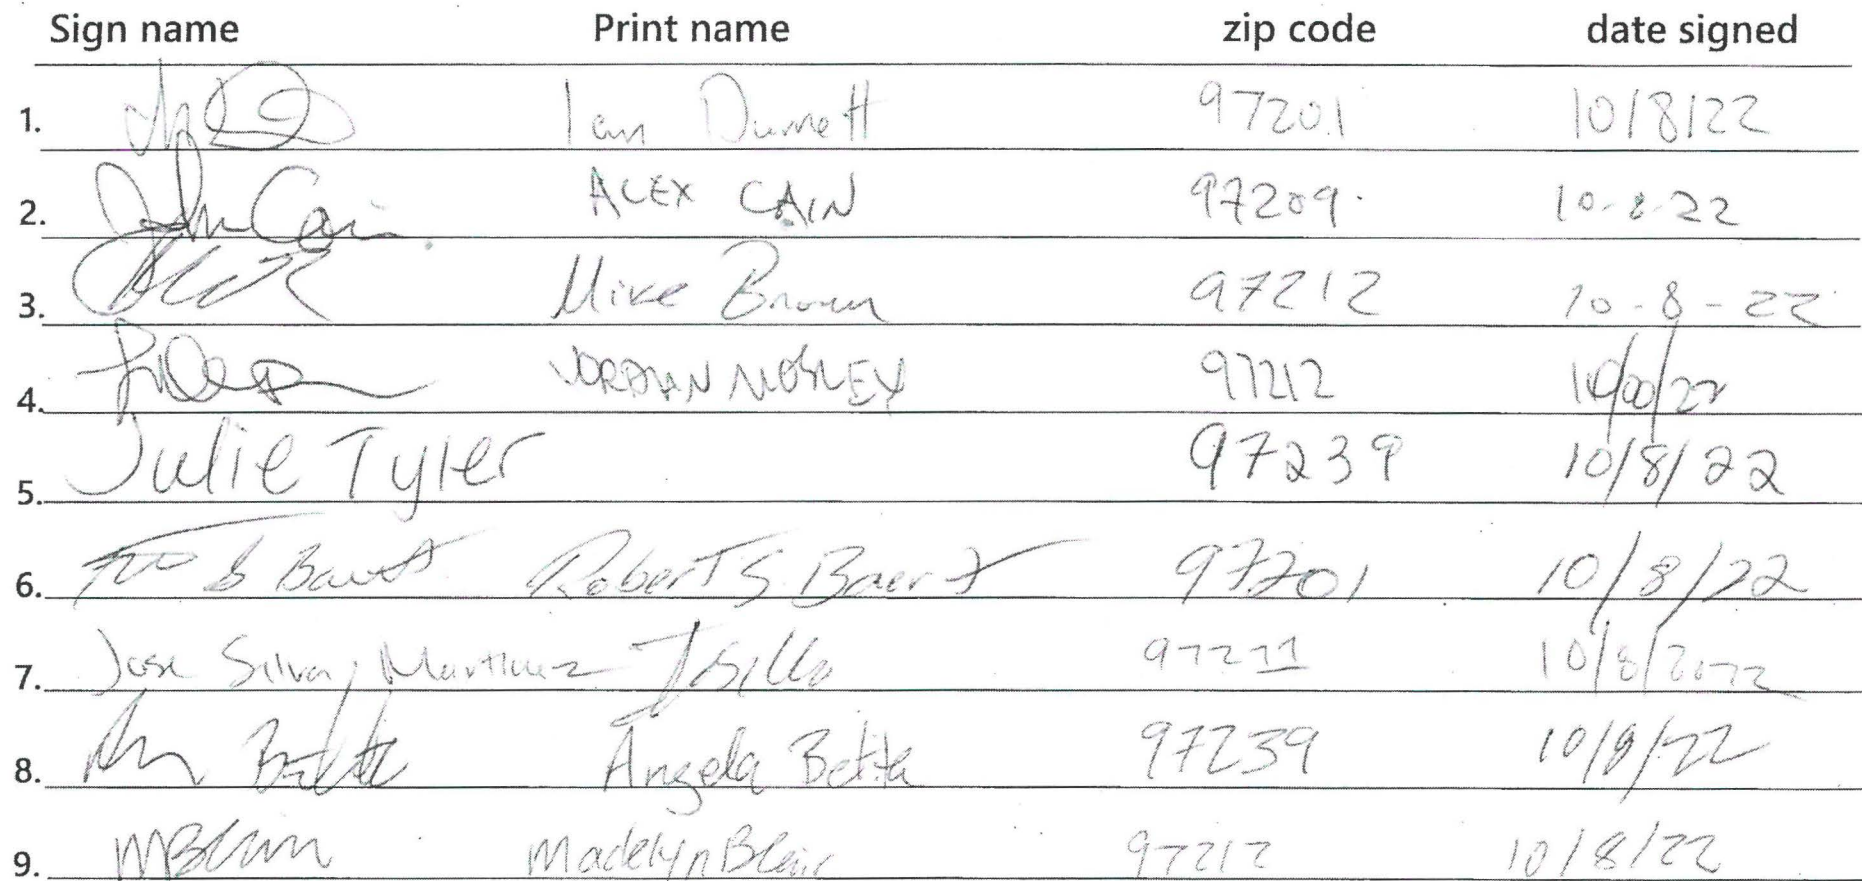 Sign name Print name zip code date signed
1. Ian Durrett 97201 10/8/22
2. John Cain ALEX CAIN 97209 10-8-22
3. Mike Brown 97212 10-8-22
4. JORDAN MOSLEY 97212 22
5. Julie Tyler 97239 10/8/22
6. Robert S. Baert 97201 10/8/22
7. Jose Silva, Martinez 97211 10/8/2022
8. Angela Betita 97239 10/8/22
9. MBlair Madelyn Blair 97212 10/8/22